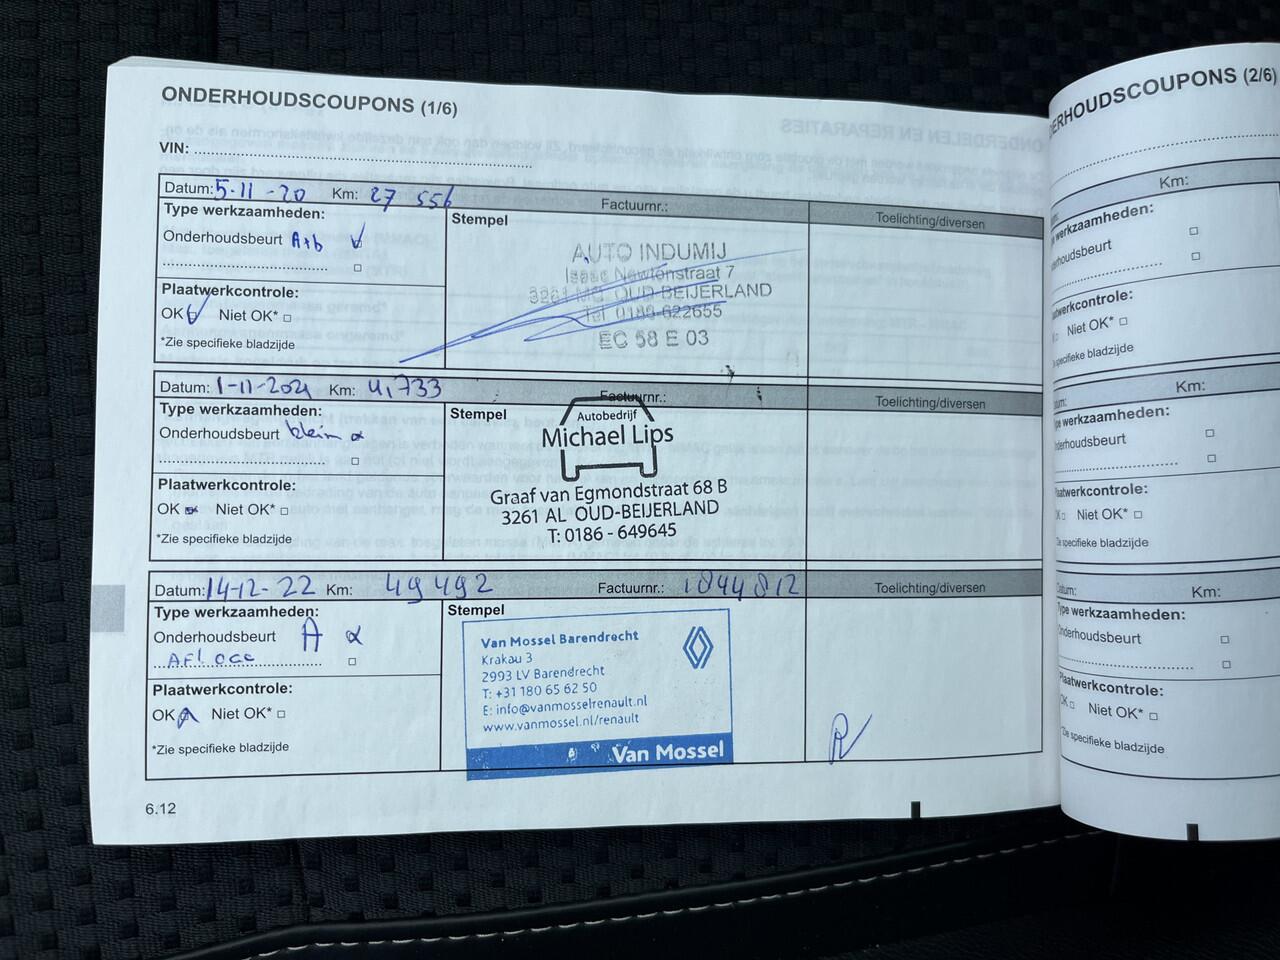 ONDERHOUDSCOUPONS (1/6)
VIN:
Datum: 5-11-20 Km: 27 556 Factuurnr.: Toelichting/diversen
Type werkzaamheden:
Onderhoudsbeurt A+b
Plaatwerkcontrole:
OK Niet OK*
*Zie specifieke bladzijde
Stempel
AUTO INDUMIJ
Isaac Newtonstraat 7
OUD-BEIJERLAND
Tel 0186-622655
EC 58 E 03
Datum: 1-11-2021 Km: 41,733 Factuurnr.: Toelichting/diversen
Type werkzaamheden:
Onderhoudsbeurt klein
Plaatwerkcontrole:
OK Niet OK*
*Zie specifieke bladzijde
Stempel
Autobedrijf
Michael Lips
Graaf van Egmondstraat 68 B
3261 AL OUD-BEIJERLAND
T: 0186 - 649645
Datum: 14-12-22 Km: 49492 Factuurnr.: 1844812 Toelichting/diversen
Type werkzaamheden:
Onderhoudsbeurt A
Plaatwerkcontrole:
OK Niet OK*
*Zie specifieke bladzijde
Stempel
Van Mossel Barendrecht
Krakau 3
2993 LV Barendrecht
T: +31 180 65 62 50
E: info@vanmosselrenault.nl
www.vanmossel.nl/renault
Van Mossel
6.12
ERHOUDSCOUPONS (2/6)
Km:
werkzaamheden:
nderhoudsbeurt
Niet OK*
specifieke bladzijde
Km:
werkzaamheden:
nderhoudsbeurt
laatwerkcontrole:
Niet OK*
specifieke bladzijde
Datum: Km:
Type werkzaamheden:
Onderhoudsbeurt
Plaatwerkcontrole:
OK Niet OK*
Zie specifieke bladzijde